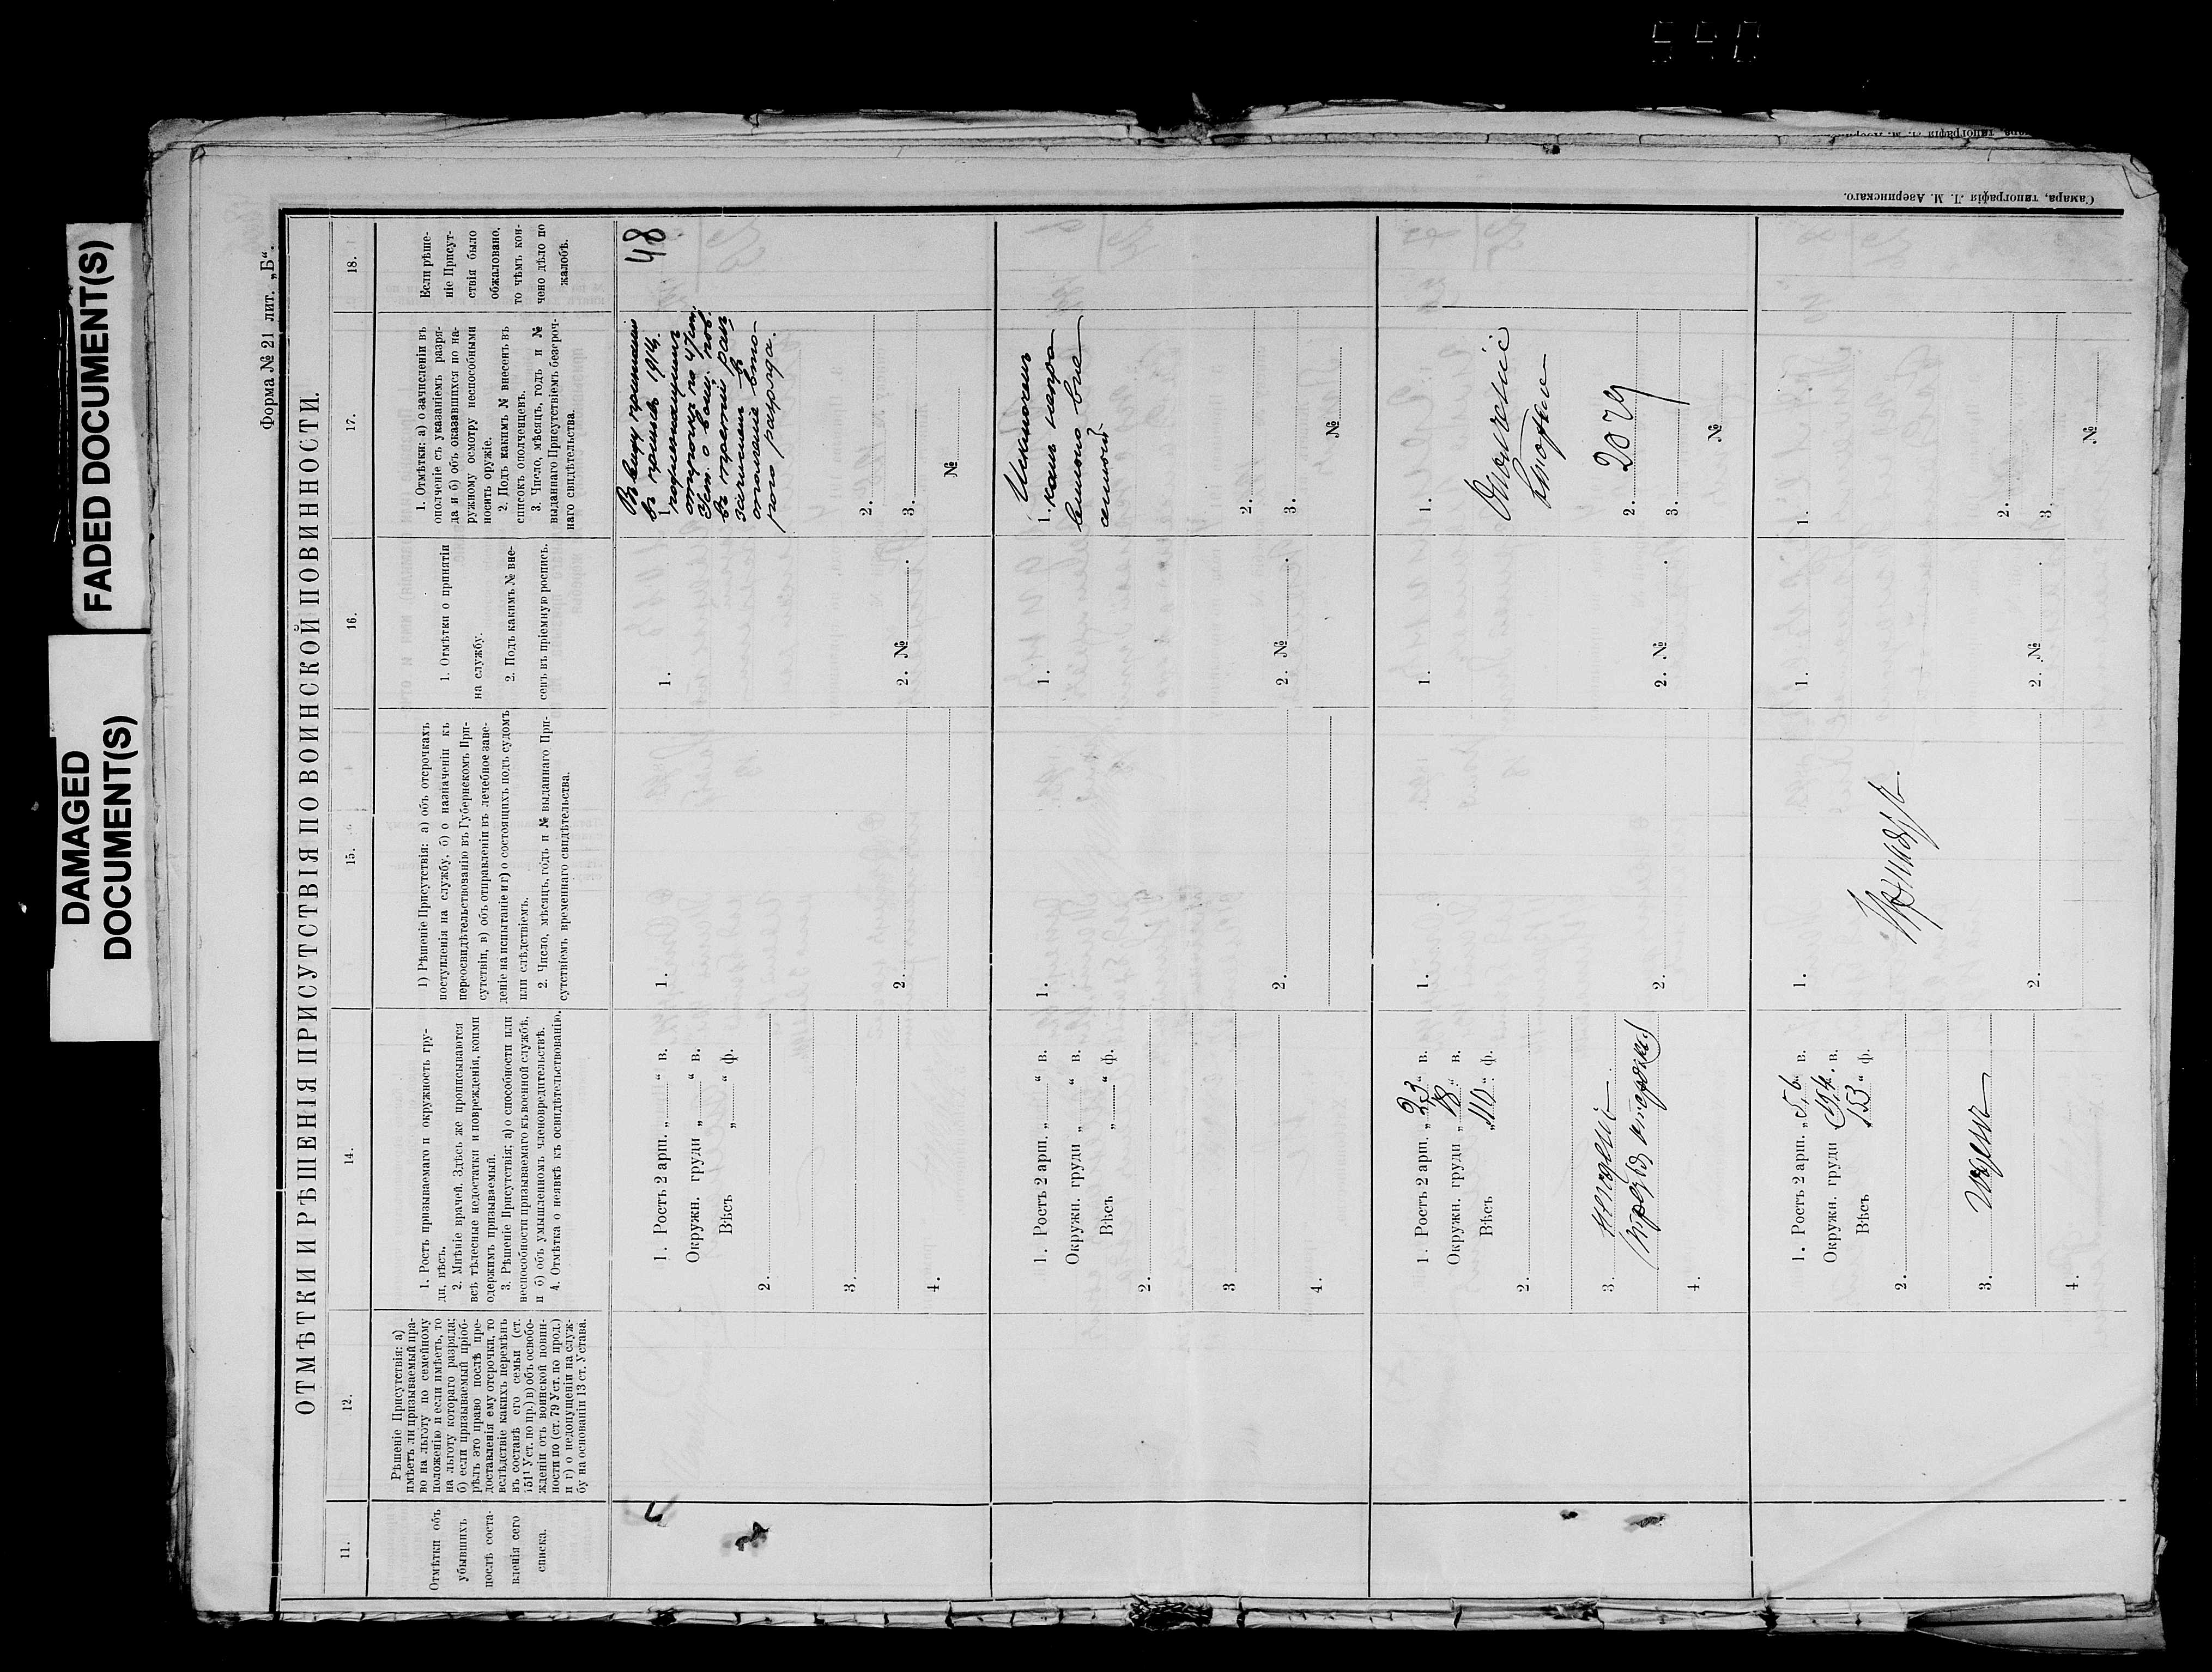 FADED DOCUMENT(S)
DAMAGED
DOCUMENT(S)
540
Самара, типографія Л. М. Азеринскаго.
Форма № 21 лит. „Б“.
ОТМѢТКИ И РѢШЕНІЯ ПРИСУТСТВІЯ ПО ВОИНСКОЙ ПОВИННОСТИ.
11.
Отмѣтки объ
убывшихъ
послѣ соста-
вленія сего
списка.
12.
Рѣшеніе Присутствія: а)
имѣетъ ли призываемый пра-
во на льготу по семейному
положенію и если имѣетъ, то
на льготу котораго разряда;
б) если призываемый пріоб-
рѣлъ это право послѣ пре-
доставленія ему отсрочки, то
вслѣдствіе какихъ перемѣнъ
въ составѣ его семьи (ст.
151¹ Уст. по пр.) в) объ освобо-
жденіи отъ воинской повин-
ности по (ст. 79 Уст. по прод.)
и г) о недопущеніи на служ-
бу на основаніи 13 ст. Устава.
14.
1. Ростъ призываемаго и окружность гру-
ди, вѣсъ.
2. Мнѣніе врачей. Здѣсь же прописываются
всѣ тѣлесные недостатки и поврежденія, коими
одержимъ призываемый.
3. Рѣшеніе Присутствія; а) о способности или
неспособности призываемаго къ военной службѣ,
и б) объ умышленномъ членовредительствѣ.
4. Отмѣтка о неявкѣ къ освидѣтельствованію.
15.
1) Рѣшеніе Присутствія: а) объ отсрочкахъ
поступленія на службу, б) о назначеніи къ
переосвидѣтельствованію въ Губернскомъ При-
сутствіи, в) объ отправленіи въ лечебное заве-
деніе на испытаніе и г) о состоящихъ подъ судомъ
или слѣдствіемъ.
2. Число, мѣсяцъ, годъ и № выданнаго При-
сутствіемъ временнаго свидѣтельства.
16.
1. Отмѣтки о принятіи
на службу.
2. Подъ какимъ № вне-
сенъ въ пріемную роспись.
17.
1. Отмѣтки: а) о зачисленіи въ
ополченіе съ указаніемъ разря-
да и б) объ оказавшихся по на-
ружному осмотру неспособными
носить оружіе.
2. Подъ какимъ № внесенъ въ
списокъ ополченцевъ.
3. Число, мѣсяцъ, годъ и №
выданнаго Присутствіемъ безсроч-
наго свидѣтельства.
18.
Если рѣше-
ніе Присут-
ствія было
обжаловано,
то чѣмъ кон-
чено дѣло по
жалобѣ.
1. Ростъ 2 арш. „ “ в.
Окружн. груди „ “ в.
Вѣсъ „ “ ф.
2.
3.
4.
1.
2.
1.
2. №
въ призывъ 1914,
отсрочку по 47 ст.
Уст. о воин. пов.
въ третій разъ
зачисленъ въ
ополченіе вто-
рого разряда.
1.
2.
3.
№
48
1. Ростъ 2 арш. „ “ в.
Окружн. груди „ “ в.
Вѣсъ „ “ ф.
2.
3
4.
1.
2.
1.
2. №
Исключенъ
1. какъ непра-
вильно вне-
сенный
2.
3.
№
1. Ростъ 2 арш. „ 23 “ в.
Окружн. груди „ 18 “ в.
Вѣсъ „ 110 “ ф.
2.
3.
4.
1.
2.
1.
2. №
1.
2. 2079
3.
№
1. Ростъ 2 арш. „ 5,6 в.
Окружн. груди 19,4 в.
Вѣсъ 153 “ ф.
2.
3. Годенъ
4.
1.
Принятъ.
2.
1.
2. №
1.
2.
3.
№